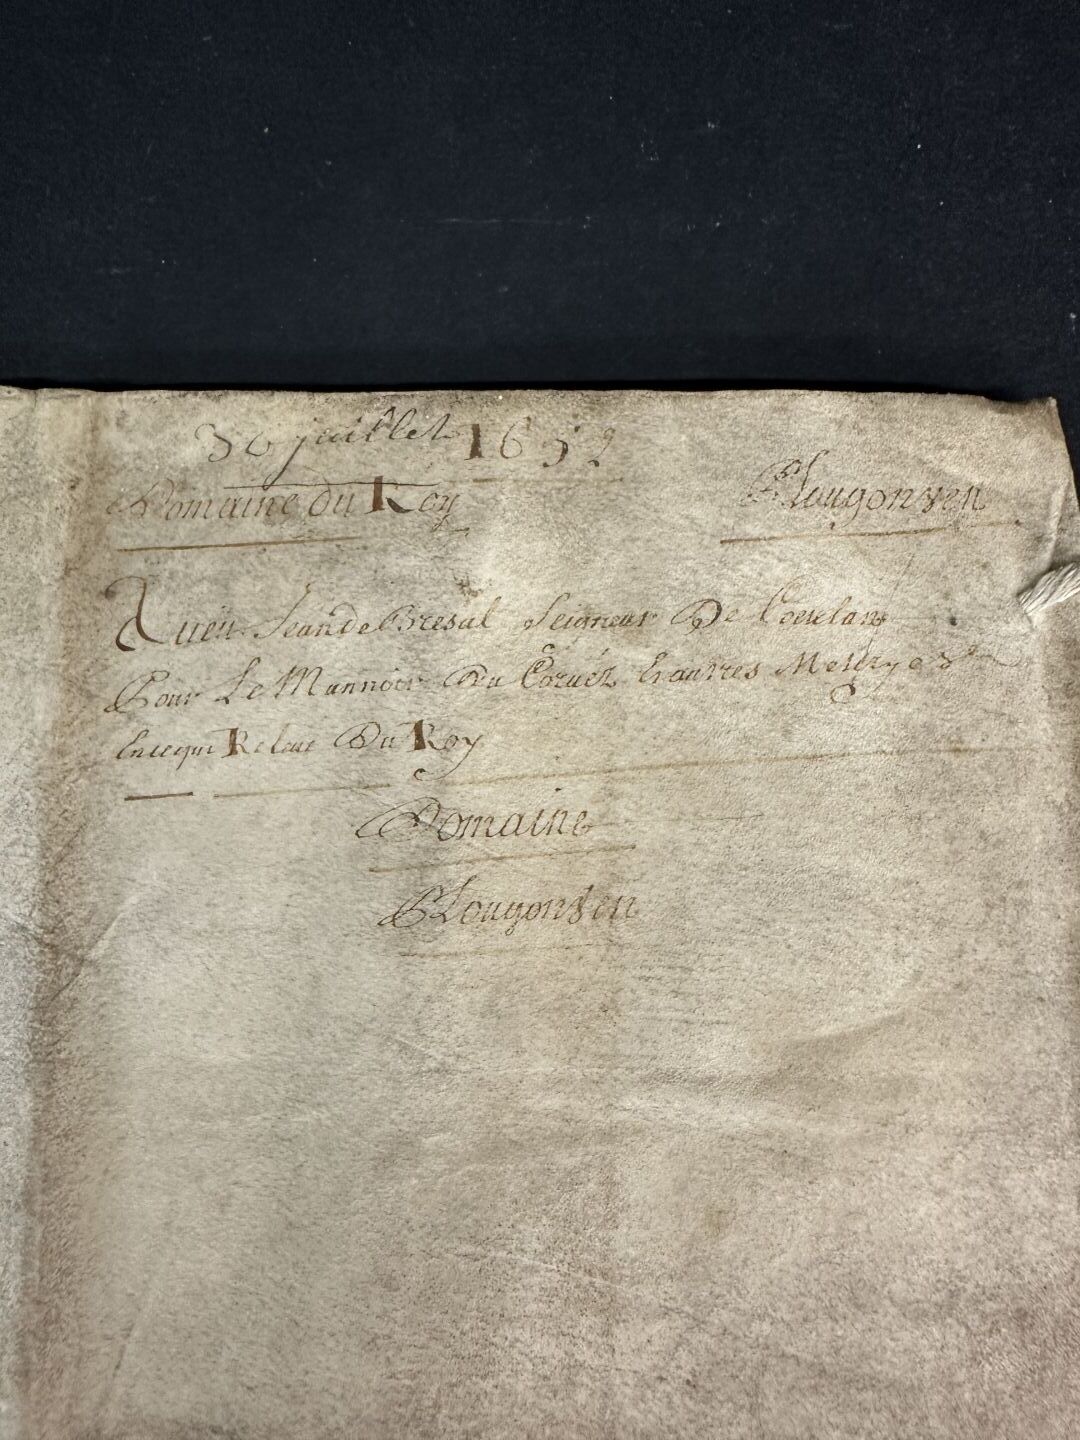 30 juillet 1652
Domaine du Roy Plougonven
Aueu Jean de Bresal Seigneur De Coeulan
Pour Le Mannoir Du Cozuéz Et autres
Encequi Releue Du Roy
Domaine
Plougonven